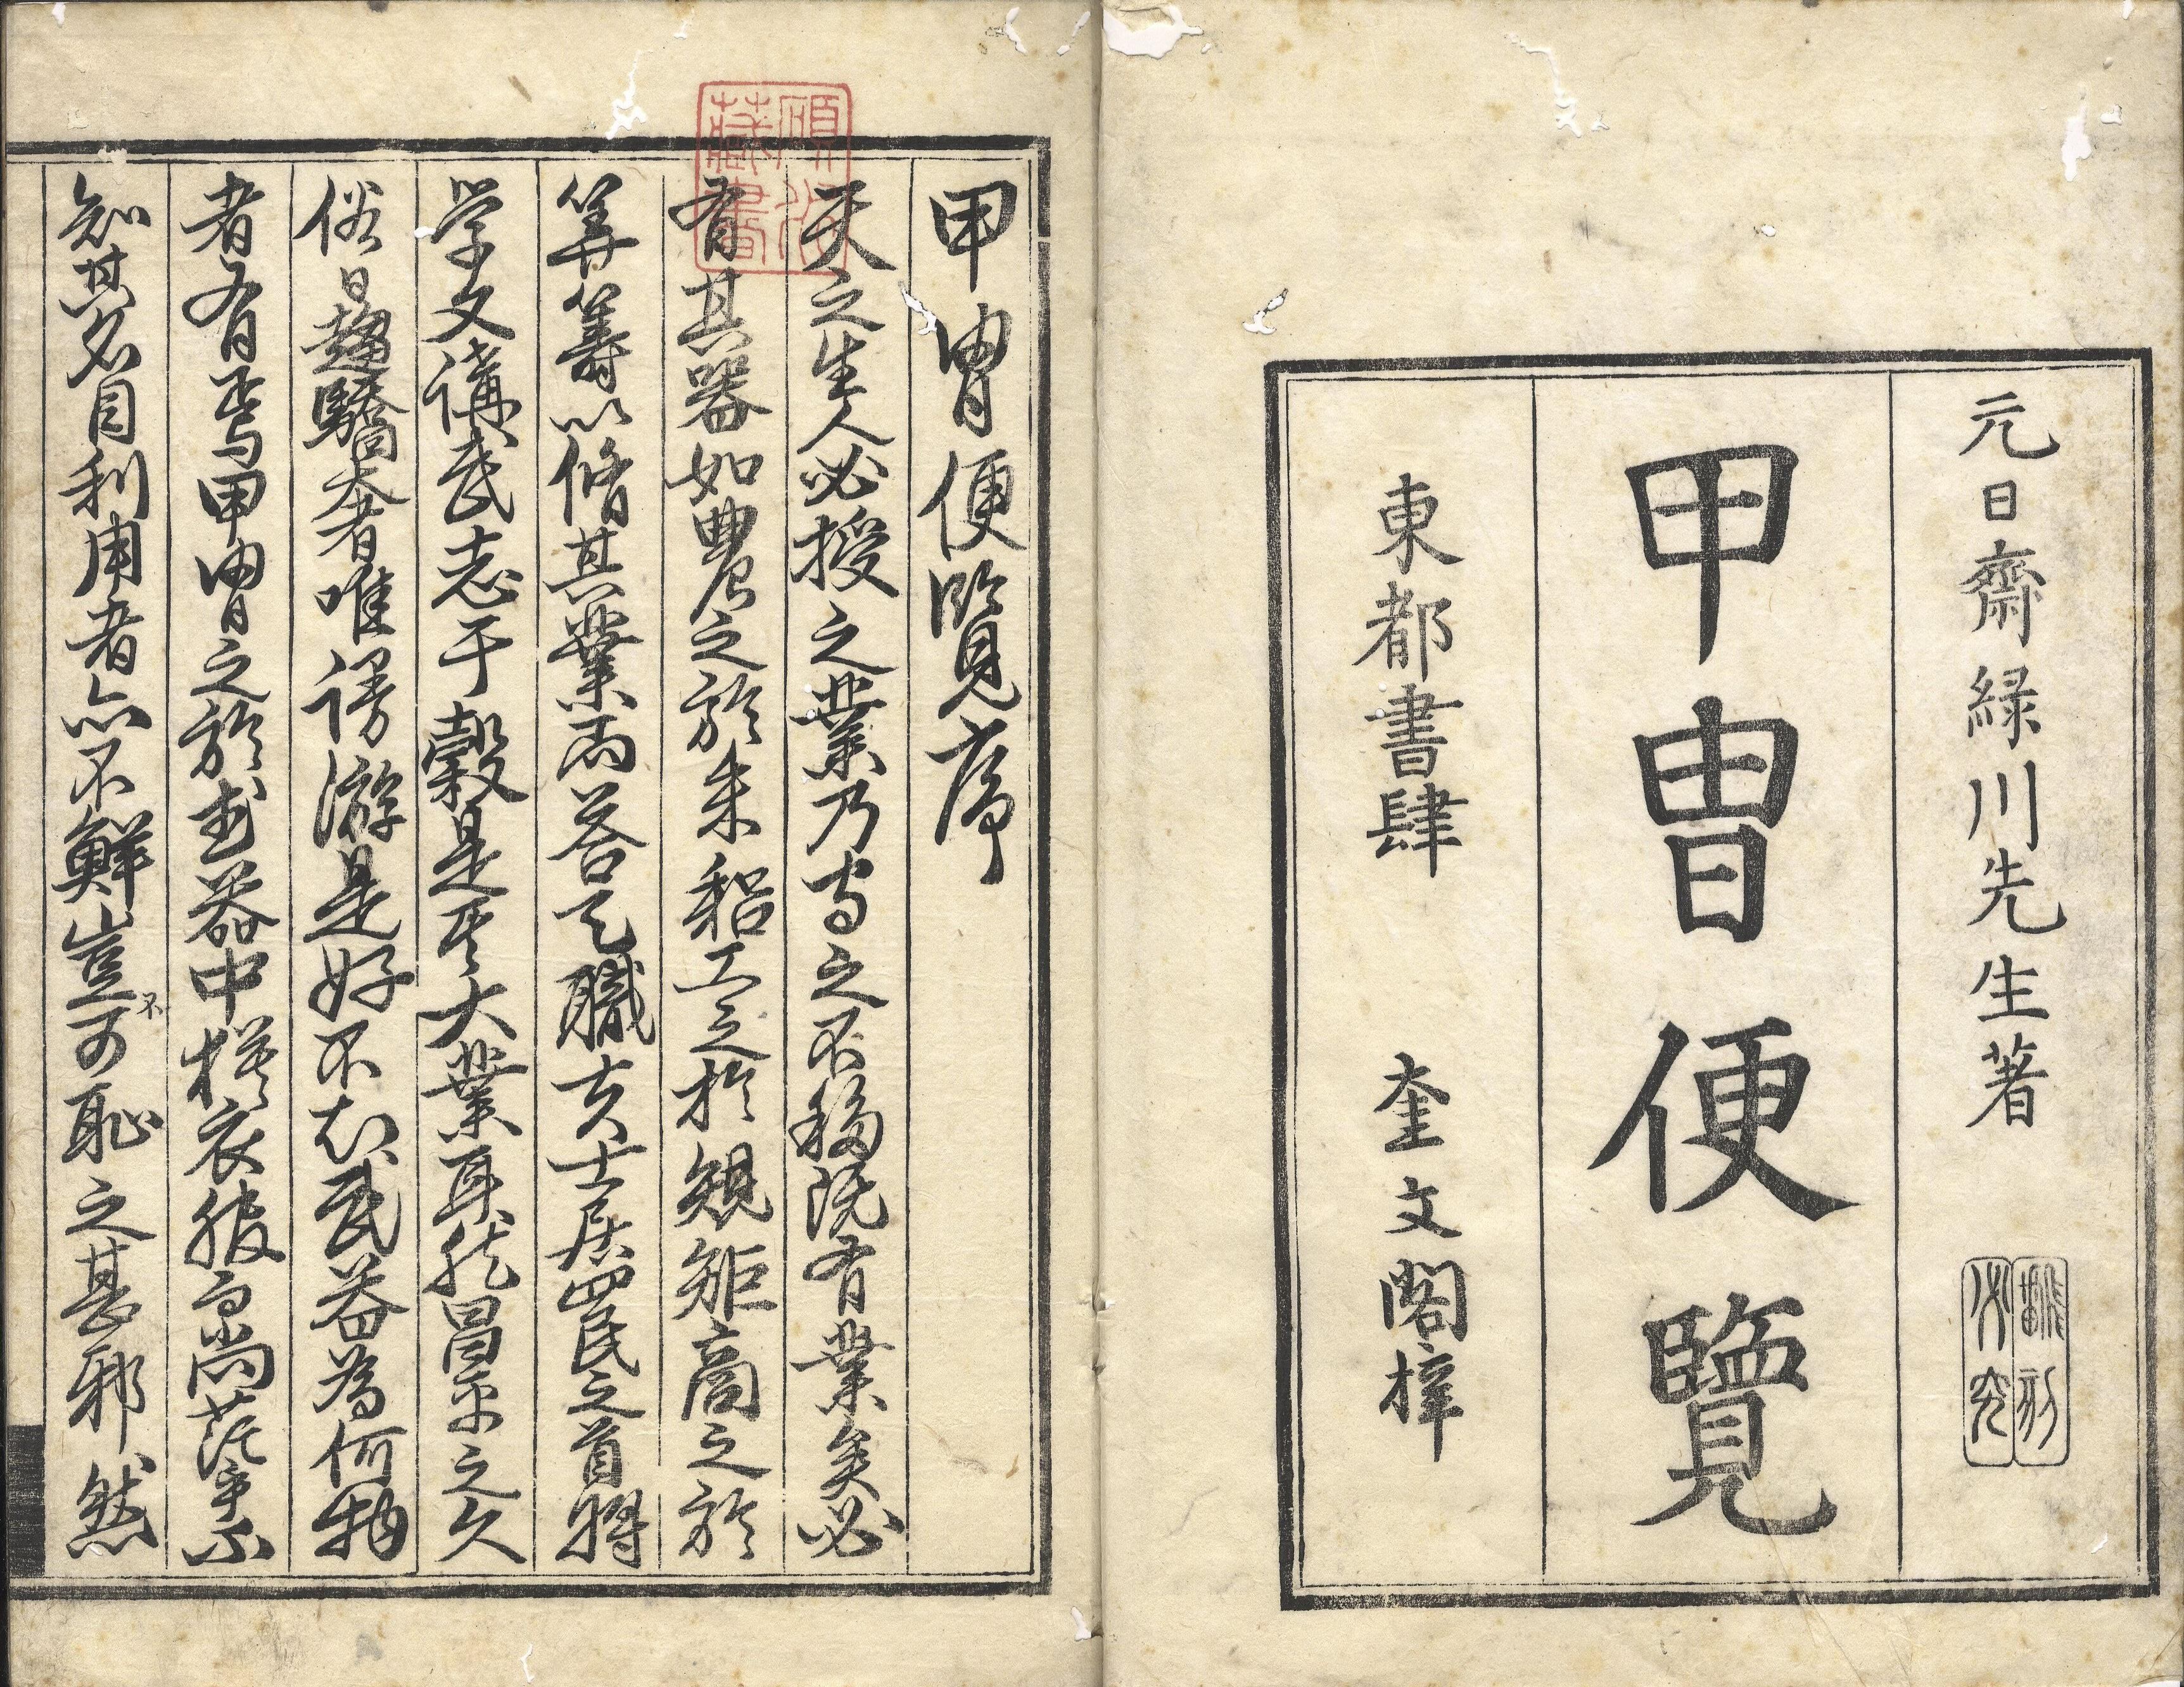 元日齋緑川先生著
甲冑便覽
東都書肆 奎文閣梓
甲冑便覧序
天之生人必授之業乃守之不移既有業矣必
有其器如農之於耒耜工之於規矩商之於
筭籌以脩其業而答天職夫士居四民之首將
学文講武志于穀是其大業耳然昌平之久
俗日趨驕奢唯謾游是好不知武器為何物
者有焉甲冑之於武器中様衣服而尚茫乎不
知其名目利用者亦不鮮豈不可恥之甚邪然